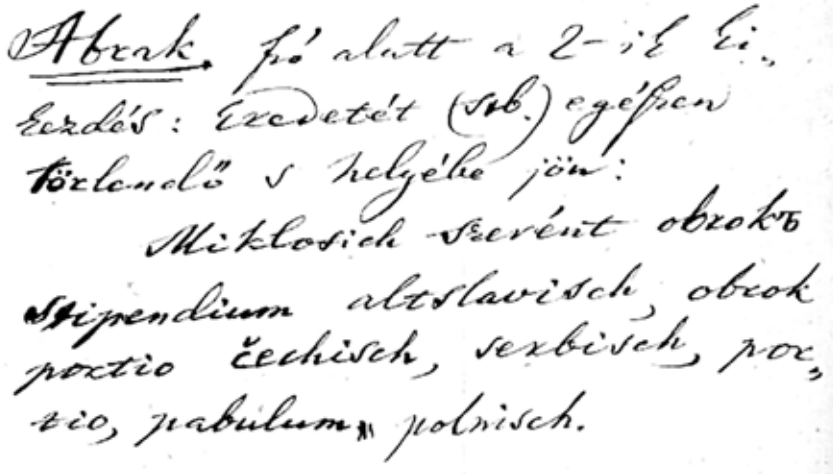 Abrak. szó alatt a 2-ik ki„
kezdés: Eredetét (stb.) egészen
törlendő s helyébe jön:
Miklosich szerént obrokъ
stipendium altslavisch, obrok
portio čechisch, serbisch, por„
tio, pabulum„ polnisch.